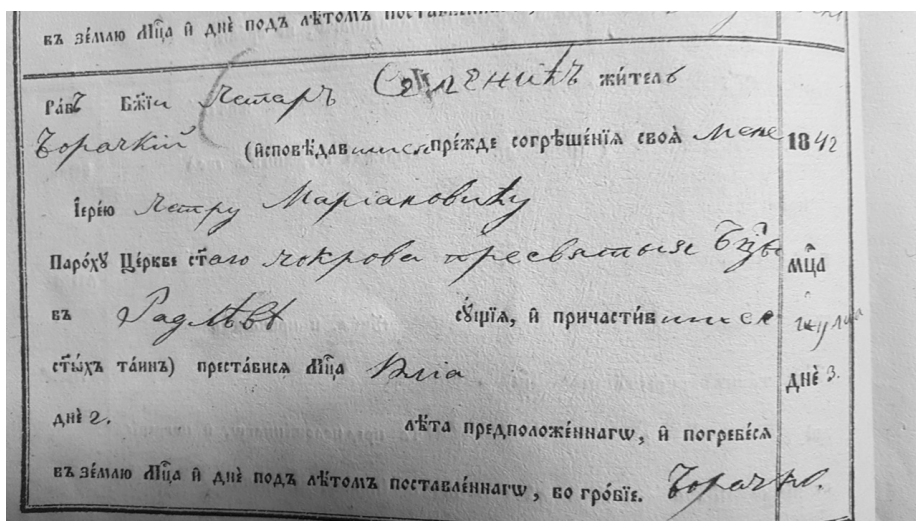 въ зе́млю Мц҃а и҆ днѐ под̾ лѣ́томъ поставле́ннагѡ
Ра́бъ Бж҃їи Петаръ Семенић жи́тель
Борачкій (и҆сповѣ́давшися пре́жде согрѣше́нїѧ своѧ̀ мене 1842
І҆ере́ю Петру Маріановићу
Паро́хꙋ Це́ркве ст҃аго покрова пресвятыя Бцы Мц҃а
въ Радлѣвѣ сꙋ́щїѧ, и҆ причасти́вшися іулиа
ст҃ы́хъ та́инъ) преста́висѧ Мц҃а Юліа днѐ 3.
днѐ 2. лѣ́та предположе́ннагѡ, и҆ погребе́сѧ
въ зе́млю Мц҃а и҆ днѐ под̾ лѣ́томъ поставле́ннагѡ, во гро́бїе. Борачко.